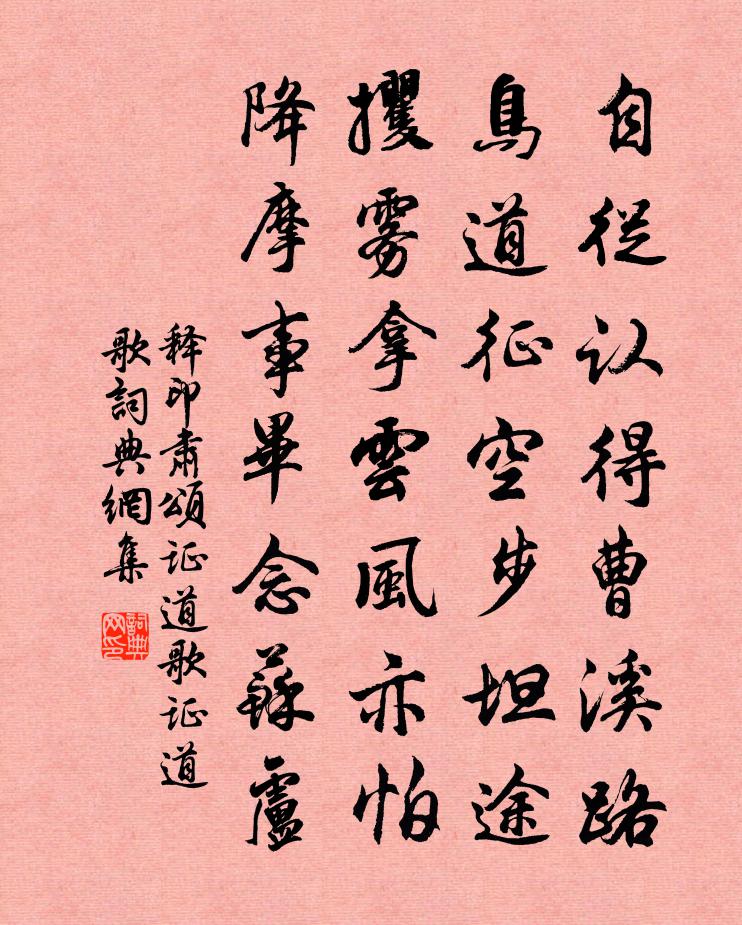 自從认得曹溪路
鳥道征空步坦途
攫雾拿雲風亦怕
降摩事畢念蘇盧
释印肃頌证道歌证道
歌詞典網集
詞典
网印